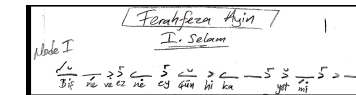 Ferahfeza Ayin
I. Selam
Mode I
Biş ne ve ez nê ey Gün hi ka yst mi